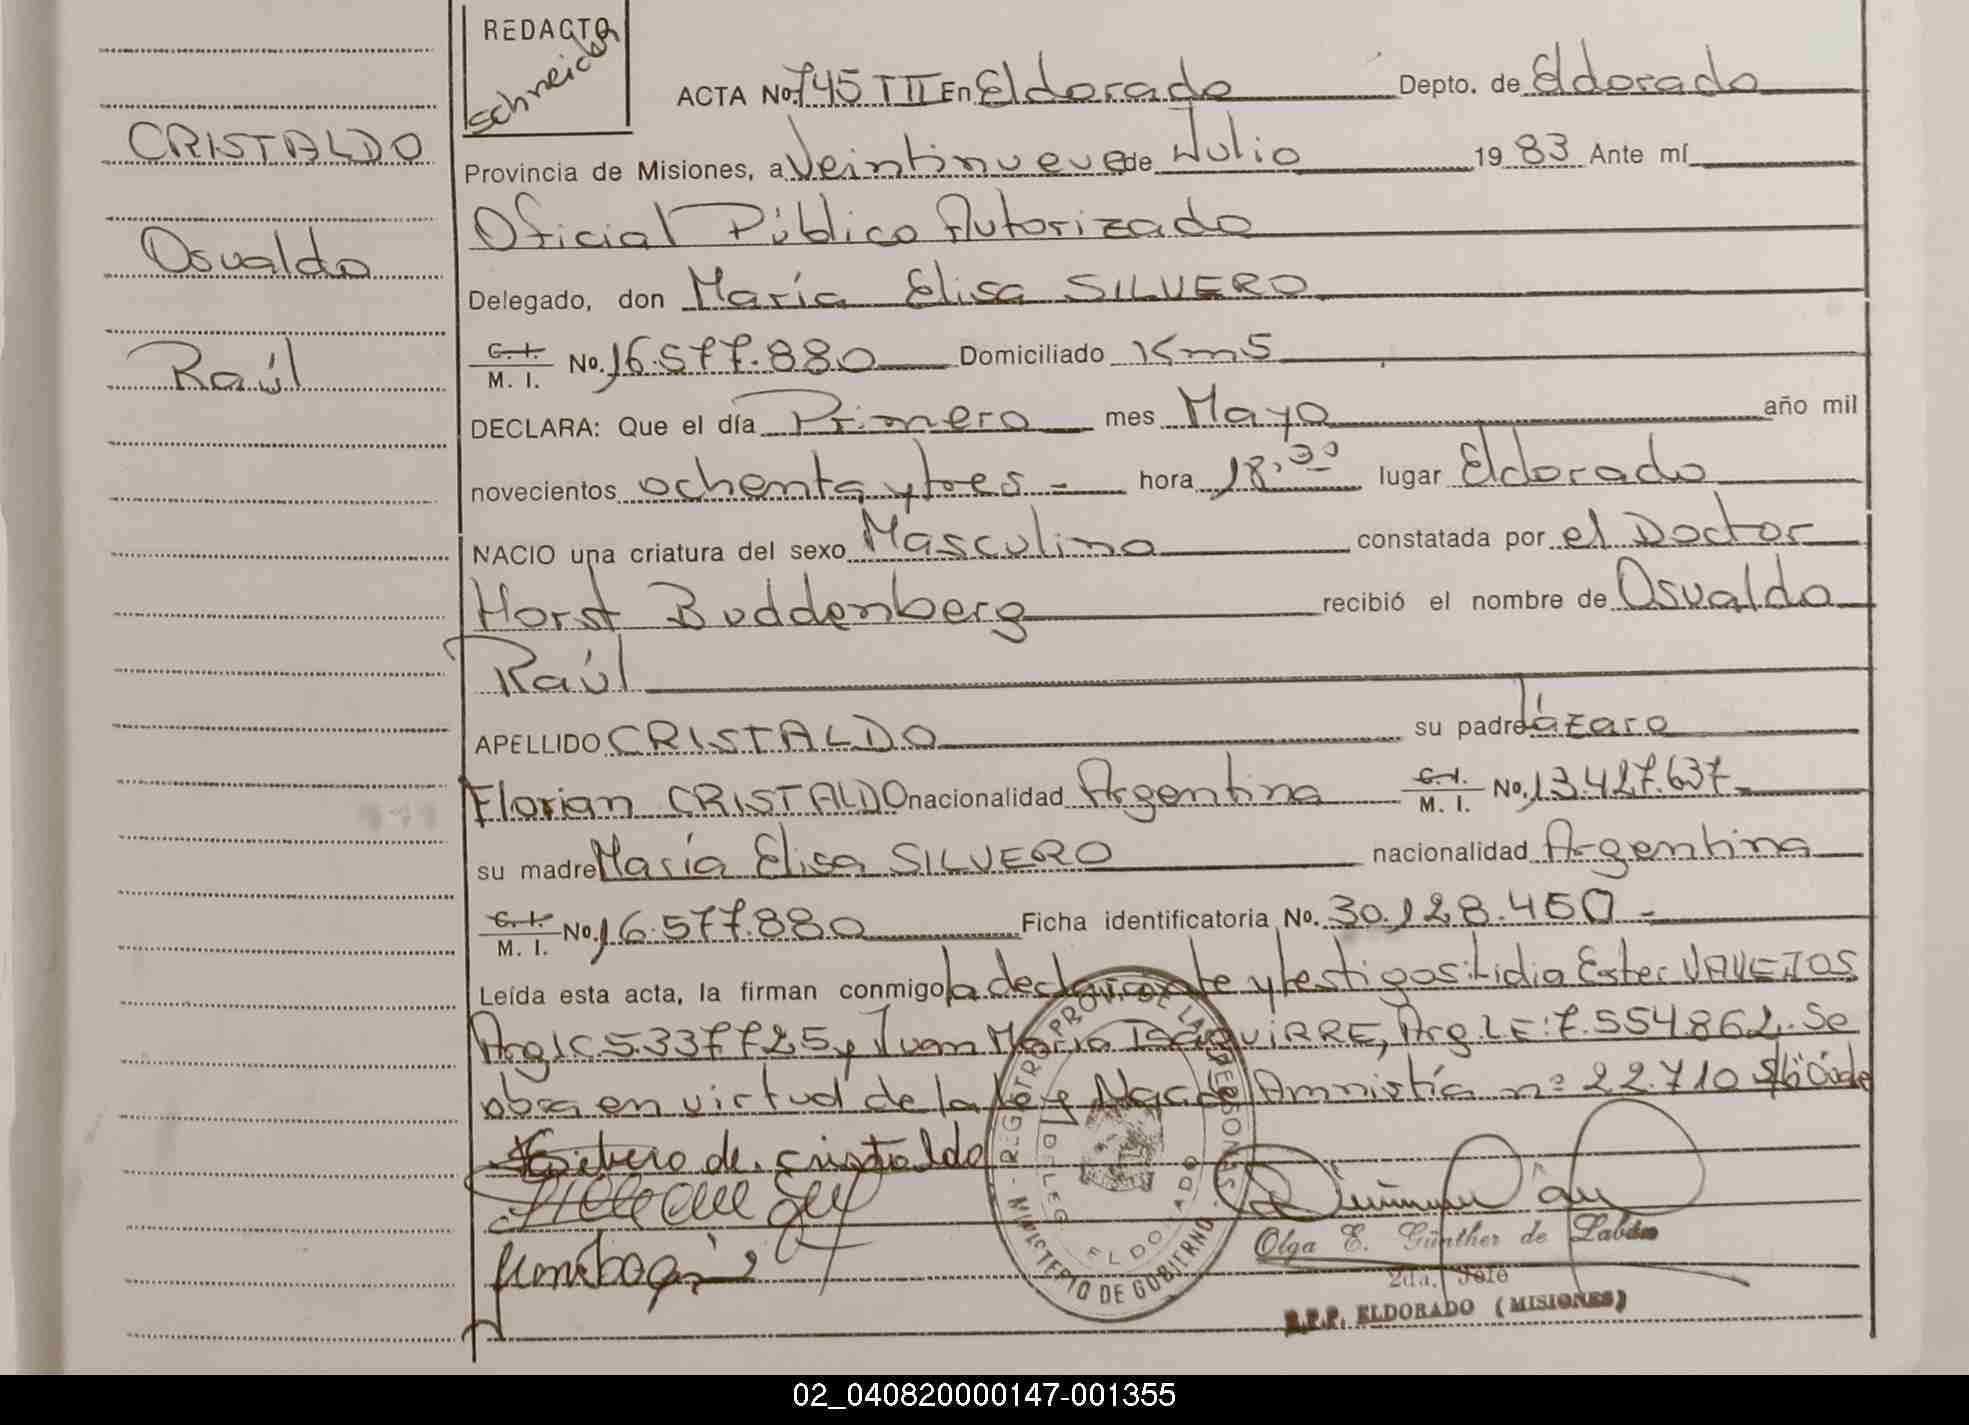 REDACTO
Schneider
CRISTALDO
Osvaldo
Raúl
ACTA No. 745 TII En Eldorado Depto. de Eldorado
Provincia de Misiones, a Veintinueve de Julio 19 83 Ante mí
Oficial Público Autorizado
Delegado, don María Elisa SILVERO
C. I. / M. I. No. 16.577.880 Domiciliado Km5
DECLARA: Que el día Primero mes Mayo año mil
novecientos ochenta y tres - hora 18,30 lugar Eldorado
NACIO una criatura del sexo Masculino constatada por el Doctor
Horst Buddenberg recibió el nombre de Osvaldo
Raúl
APELLIDO CRISTALDO su padre Lázaro
Florian CRISTALDO nacionalidad Argentina C. I. / M. I. No. 13.427.637-
su madre María Elisa SILVERO nacionalidad Argentina
C. I. / M. I. No. 16.577.880 Ficha identificatoria No. 30.128.450 -
Leída esta acta, la firman conmigo la declarante y testigos: Lidia Ester VALLEJOS
Arg. 5.337.725 y Juan María Arg. L.E: 7.554.862. Se
en virtud de la Ley Nac. de Amnistía nº 22.710
de Cristaldo
REGISTRO PROV. DE LAS PERSONAS - MINISTERIO DE GOBIERNO
ELDORADO
Olga E. Günther de Labán
2da. Jefe
R.P.P. ELDORADO (MISIONES)
02_040820000147-001355